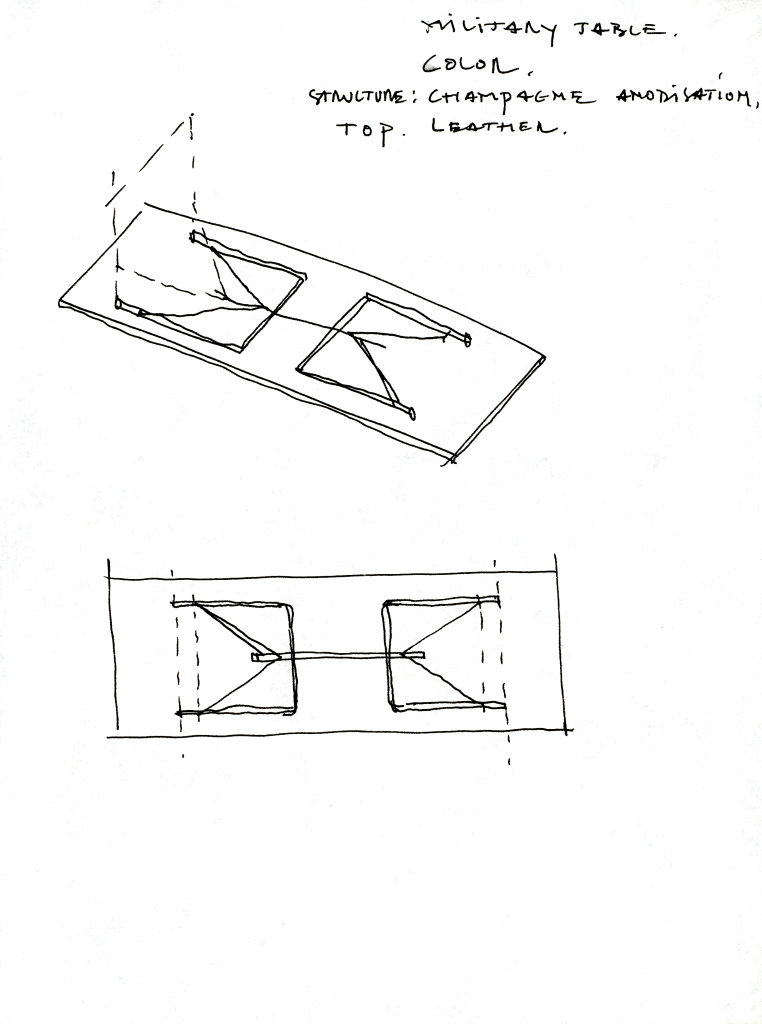 MILITARY TABLE.
COLOR.
STRUCTURE: CHAMPAGNE ANODISATION,
TOP. LEATHER.